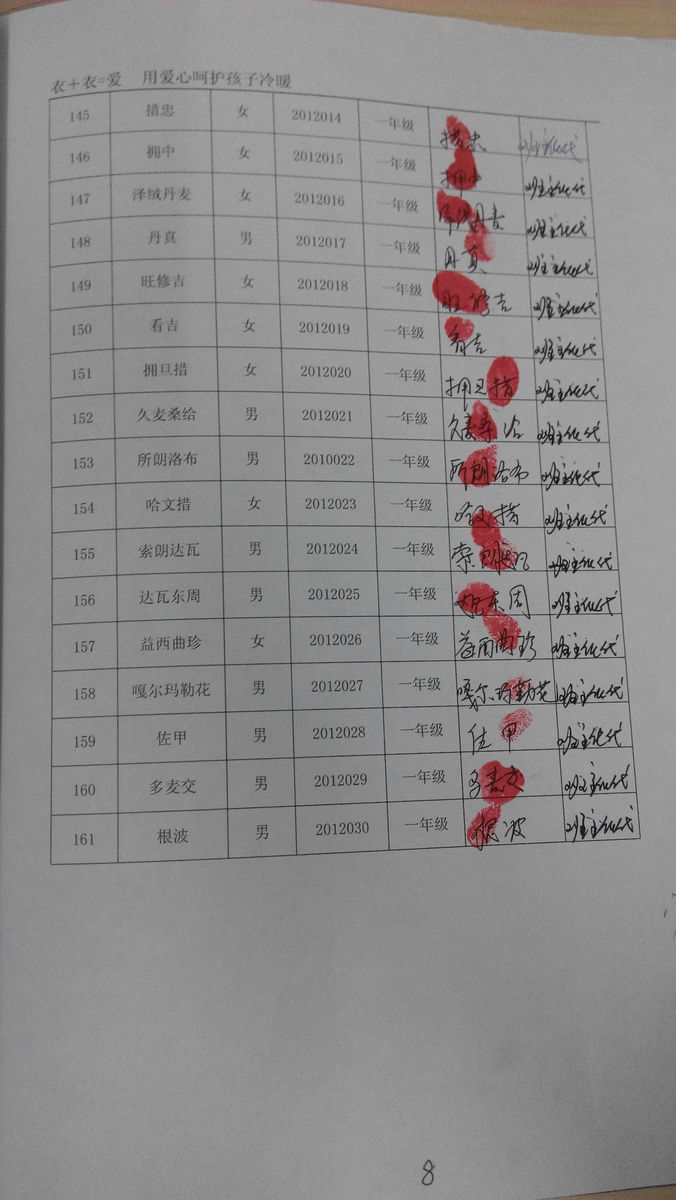 衣+衣=爱 用爱心呵护孩子冷暖
145 措忠 女 2012014 一年级 措忠 班主任代
146 拥中 女 2012015 一年级 拥中 班主任代
147 泽绒丹麦 女 2012016 一年级 泽绒丹麦 班主任代
148 丹真 男 2012017 一年级 丹真 班主任代
149 旺修吉 女 2012018 一年级 旺修吉 班主任代
150 看吉 女 2012019 一年级 看吉 班主任代
151 拥旦措 女 2012020 一年级 拥旦措 班主任代
152 久麦桑给 男 2012021 一年级 久麦桑给 班主任代
153 所朗洛布 男 2010022 一年级 所朗洛布 班主任代
154 哈文措 女 2012023 一年级 哈文措 班主任代
155 索朗达瓦 男 2012024 一年级 索朗达瓦 班主任代
156 达瓦东周 男 2012025 一年级 达瓦东周 班主任代
157 益西曲珍 女 2012026 一年级 益西曲珍 班主任代
158 嘎尔玛勒花 男 2012027 一年级 嘎尔玛勒花 班主任代
159 佐甲 男 2012028 一年级 佐甲 班主任代
160 多麦交 男 2012029 一年级 多麦交 班主任代
161 根波 男 2012030 一年级 根波 班主任代
8